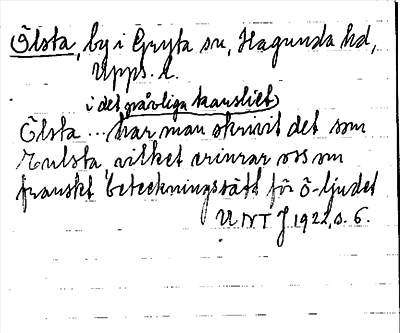 Ölsta, by i Gryta sn, Hagunda hd,
Upps. l.
i det påvliga kansliet)
Ölsta ... har man skrivit det som
Eulsta, vilket erinrar oss om
franskt beteckningssätt för ö-ljudet
UNT J 1922, s. 6.